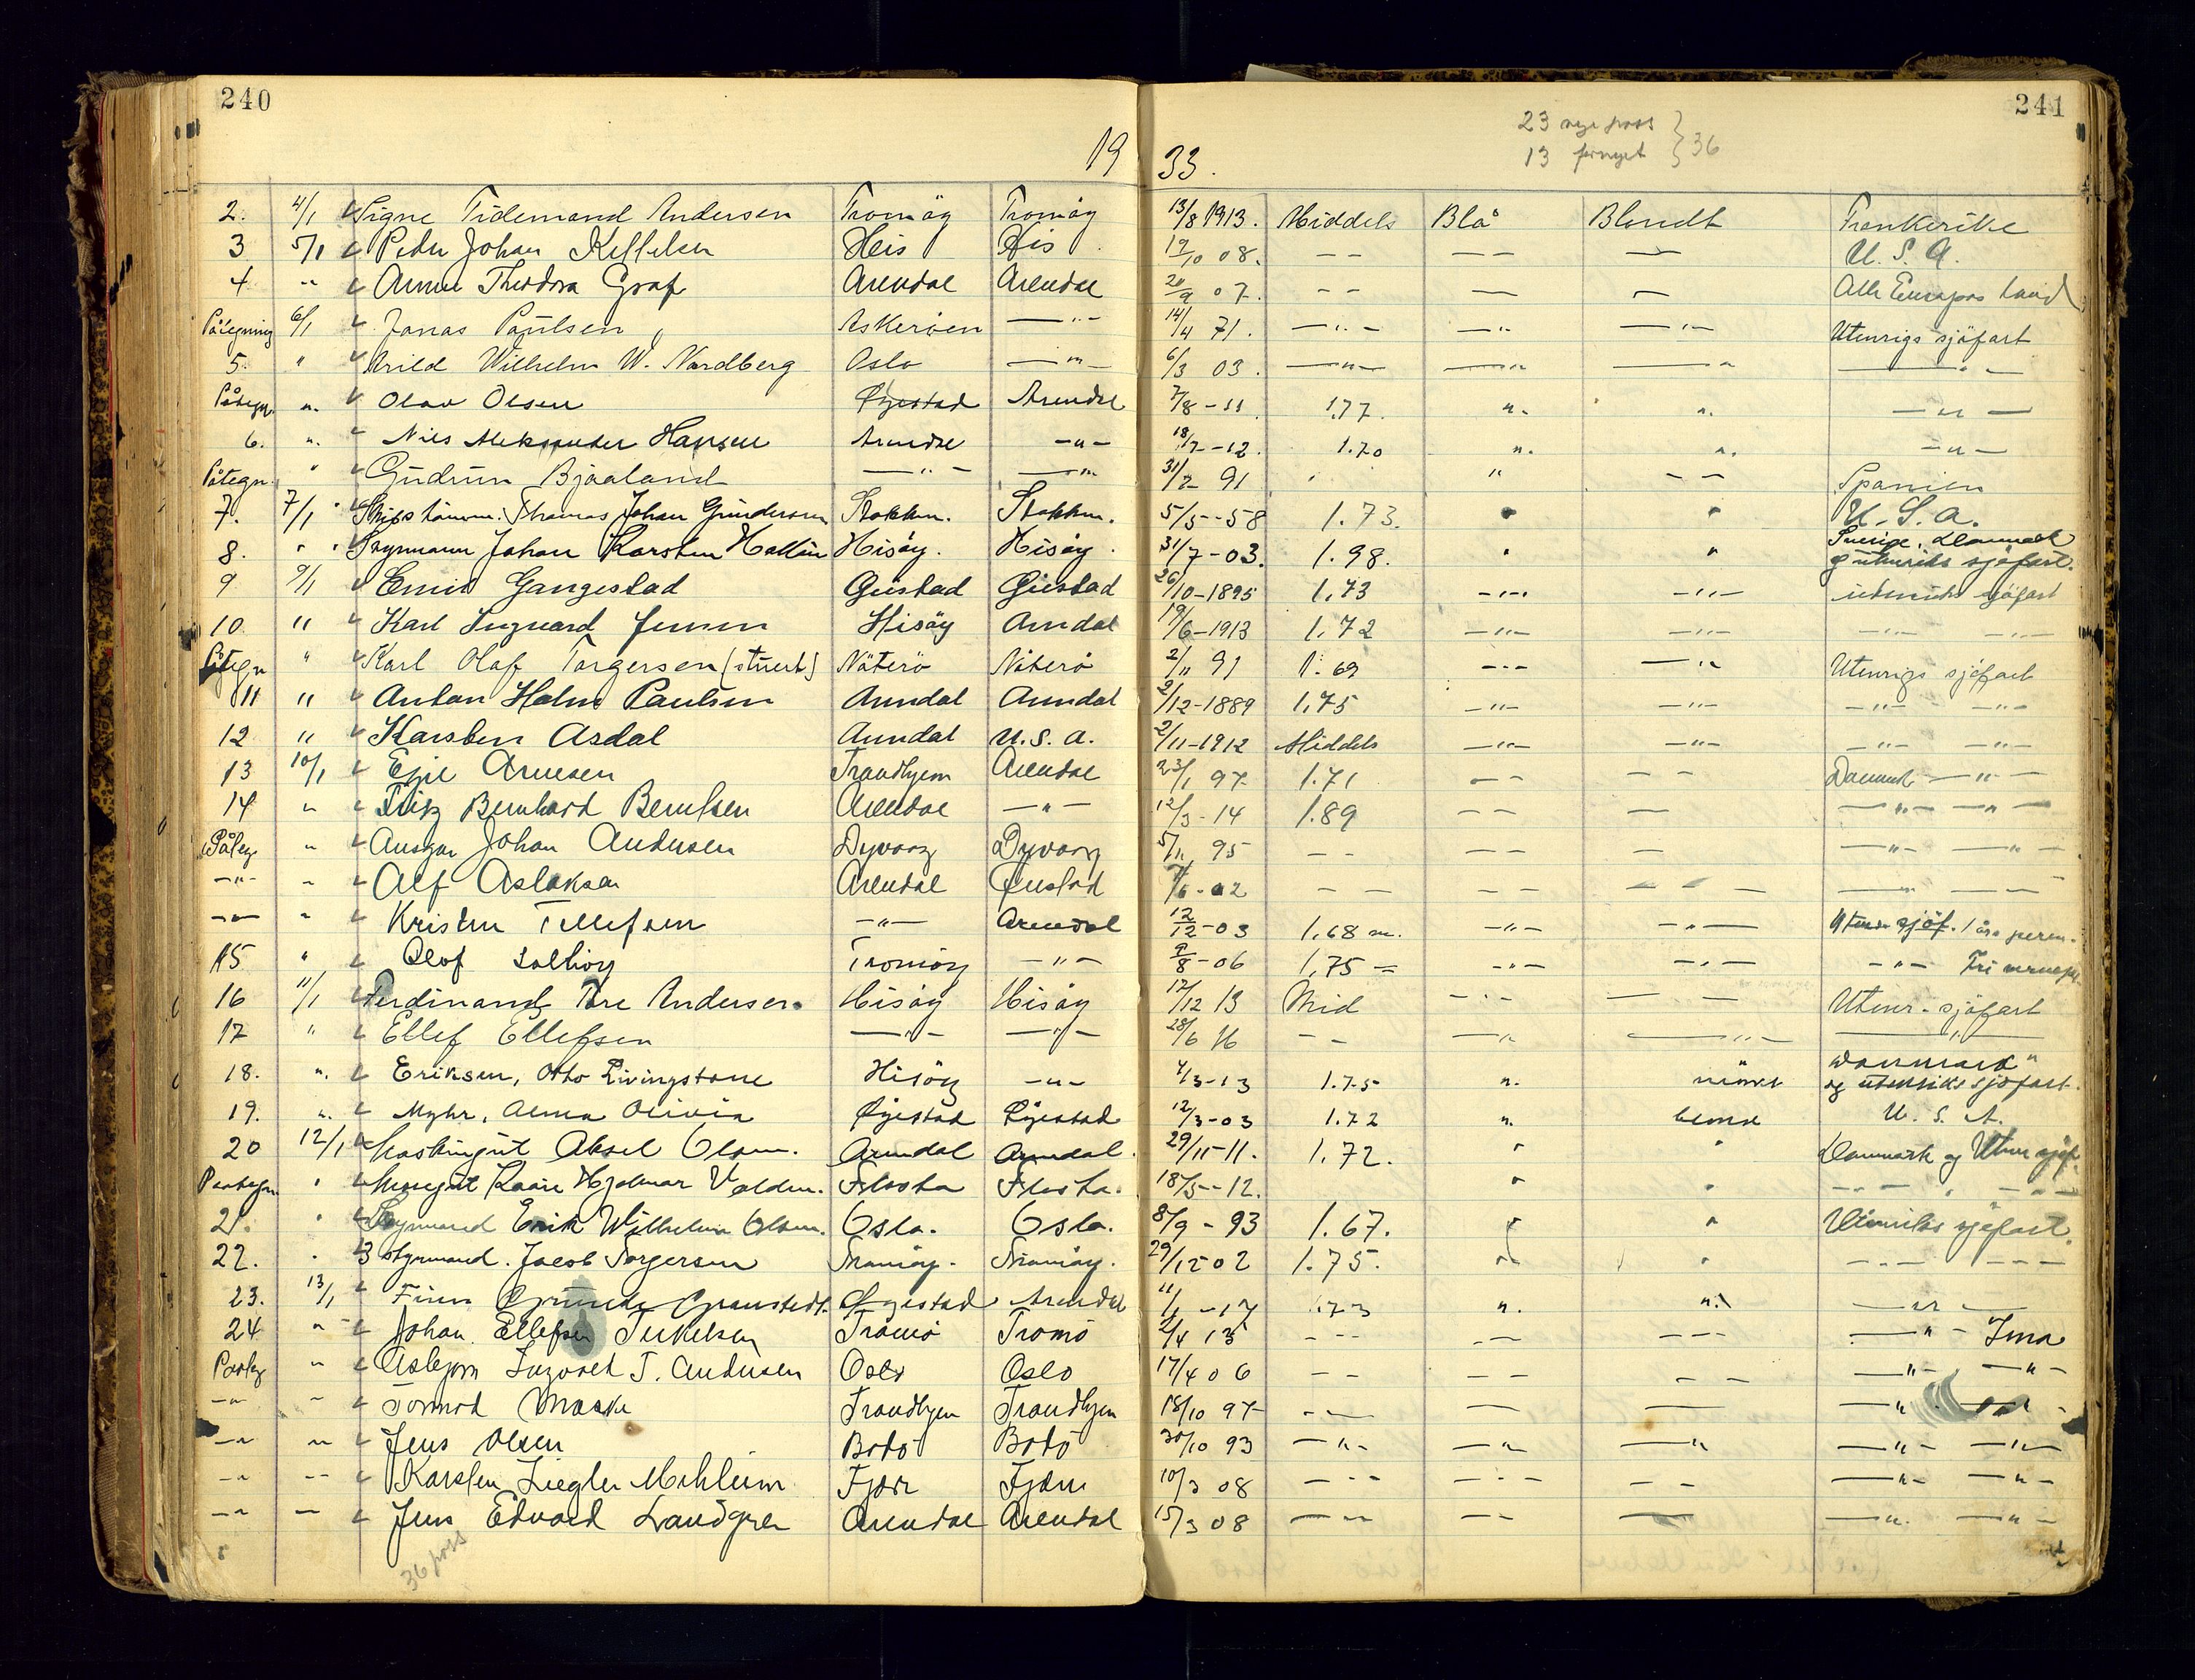 240
241
19 33.
23 nye pass
13 fornyet } 36
2. 4/1 Signe Tidemand Andersen Tromöy Tromöy 13/8 1913. Middels Blå Blondt Frankerike
3 5/1 Peder Johan Kellelsen His His 19/10 08. -- -- — U. S. A.
4 " Anna Theodora Graf Arendal Arendal 20/9 07. -- — — Alle Europas land
Påtegning 6/1 Jonas Paulsen Askeröen —"— 14/4 71. —"— —" —"— Utenrigs sjöfart
5. " Arild Wilhelm W. Nordberg Oslo —"— 6/3 03. —"— —" —" —"—
Påtegn. " Olav Olsen Øyestad Arendal 7/8-11 1.77. ". ". —"—
6. ". Nils Aleksander Hansen Arendal —"— 18/7-12. 1.70 ". ". —"—
Påtegn. " Gudrun Bjaaland —"— —"— 31/2 91 " " -- Spanien
7. 7/1 Skibstømm. Thomas Johan Gundersen Stokken. Stokken. 5/5-58 1.73. " " U.S.A.
8. " Styrmann Johan Karsten Hallin Hisöy. Hisöy. 31/7-03. 1.98. " " Sverige, Danmark og utenriks sjöfart.
9 9/1 Emil Gangestad Øiestad Øiestad 26/10-1895 1,73 —"— —"— utenriks sjöfart
10. " Karl Ingvard Jensen Hisöy Arendal 19/6-1913 1,72 —"— —"— —"— —"—
Påtegn " Karl Olaf Torgersen (stuert) Nöterö Nöterö 2/11 91 1.69 —"— —"— Utenrigs sjöfart
11 " Anton Holm Paulsen Arendal Arendal 2/12-1889 1,75 —"— —"— —"— —"—
12 " Karsten Asdal Arendal U.S.A. 2/11-1912 Middels —"— —"— —"— —"—
13 10/1 Egil Arnesen Trondhjem Arendal 23/1 97 1.71 -- -- Danmark —"—
14 " Fritz Bernhard Berntsen Arendal —"— 12/3-14 1.89 -- — —"— —"—
Påteg " Ansgar Johan Andersen Dyvaag Dyvaag 5/11 95 -- -- — —"— —"—
—"— " Alf Aslaksen Arendal Øiestad 7/6-02 -- -- -- —"— —"—
—"— " Kristen Tellefsen —"— Arendal 12/12-03 1,68 m. —"— —"— Utenr. sjöf. 1 års
15 " Olof Solborg Tromöy —"— 9/8-06 1,75 = —"— —"— —"— Fri
16 11/1 Ferdinand Tore Andersen Hisöy Hisöy 17/12 13 Mid —"— -- Utenr. sjöfart
17 " Ellef Ellefsen —"— —"— 28/6 16 -- —" —"— —"—
18. ". Eriksen, Otto Livingstone Hisöy —"— 4/3-13 1.75 ". mörk Danmark og utenriks sjöfart.
19. ". Myhr, Alma Olivia Øyestad Øyestad 12/3-03 1.72 ". blond U. S. A.
20 12/1 Maskingut Aksel Olsen. Arendal Arendal. 29/11-11. 1,72. " " Danmark og Utenr sjöf.
Paategn. " Messegut Kaare Hjalmar Valden. Flosta Flosta. 18/5-12. " " —"—
21. " Styrmand Erik Wilhelm Olsen. Oslo. Oslo. 8/9-93 1.67. " " Utenriks sjöfart.
22. " 3 styrmand. Jacob Torgersen Tromöy. Tromöy. 29/12 02 1.75. " " --- ---
23. 13/1 Finn Granstedt. Øyestad Arendal 11/1-17 1.73 ". ". —"—
24 " Johan Ellefsen Terkelsen Tromö Tromö 2/4 13 --- -- --- —"—
Paateg " Asbjørn Ingvald T. Andersen Oslo Oslo 17/4 06 -- -- -- —"— —"—
—"— " Tormod Maske Trondhjem Trondhjem 18/10 97 -- — — —"— —"—
—"— " Jens Olsen Bodö Bodö 30/10 93 —"— —" —" —"— —"—
—"— " Karsten Ziegler Mehlum Fjære Fjære 10/3 08 --- --- -- —"— —"—
—"— — Jens Edvard Landgren Arendal Arendal 15/3 08 —"— -- — —"— —"—
36 pass